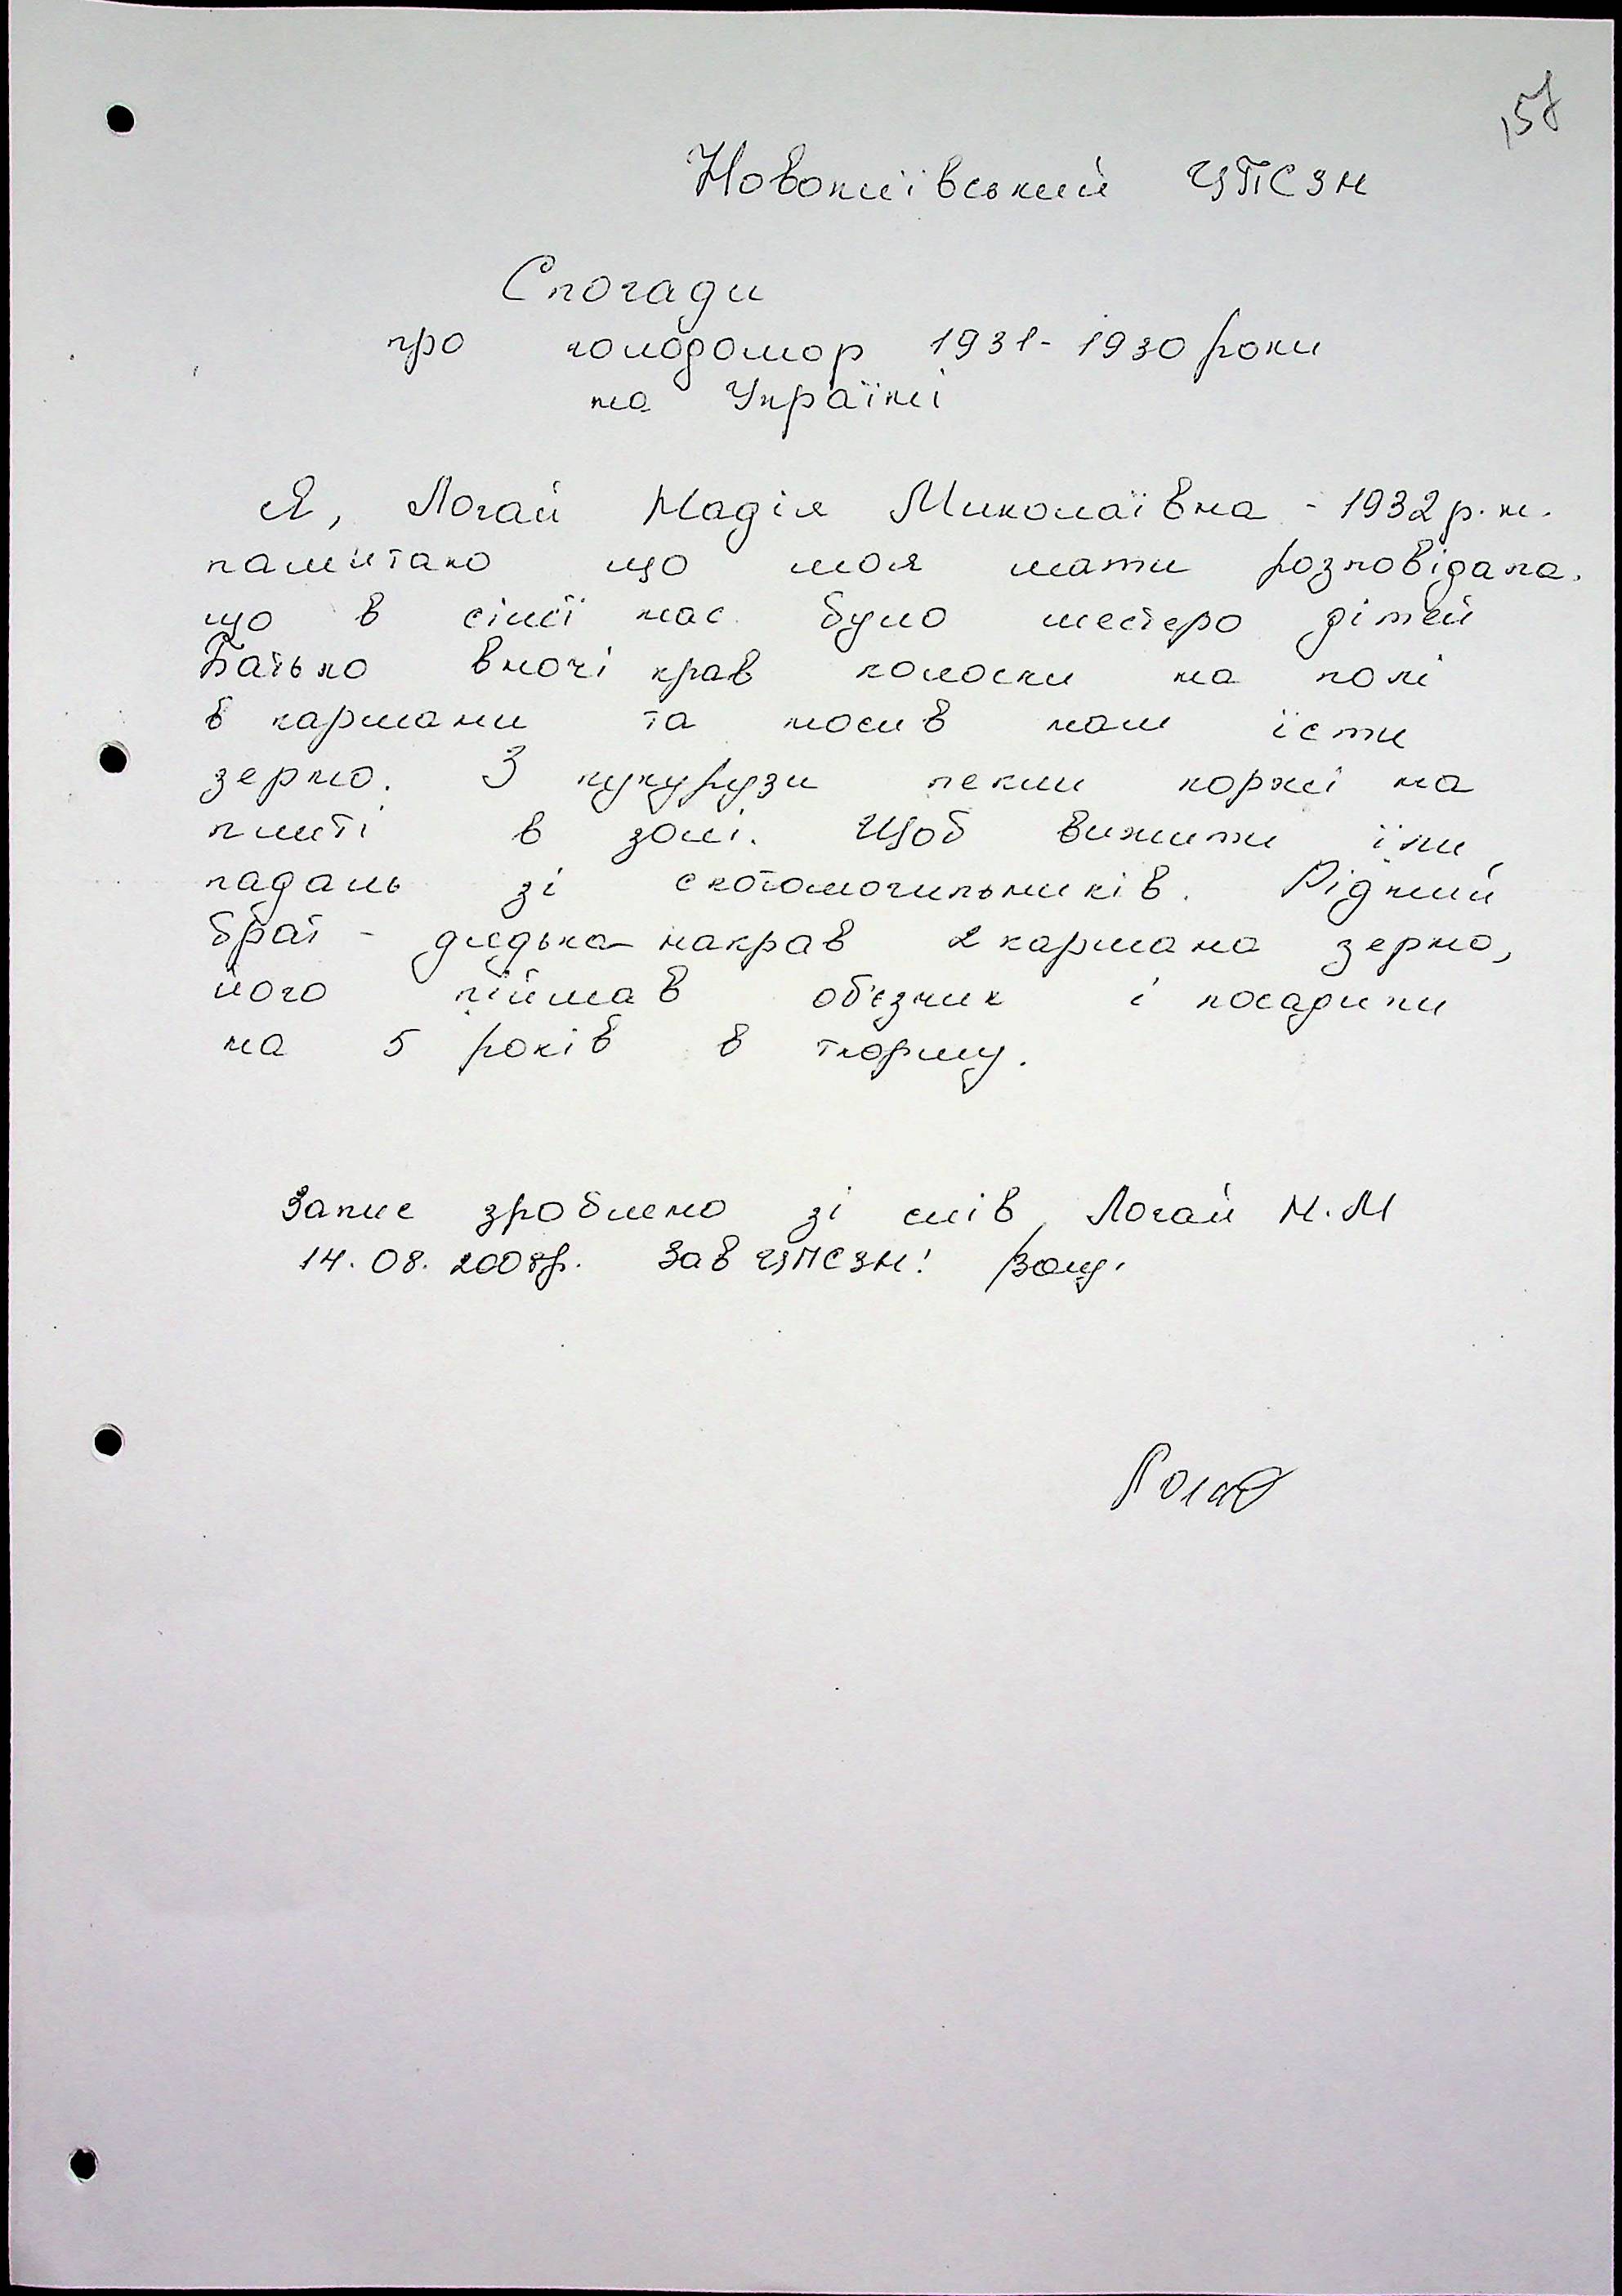 157
Новокиївський ЦПСЗН
Спогади
про голодомор 1931-1930 роки
на Україні
Я, Логай Надія Миколаївна - 1932 р.н.
памʼятаю що моя мати розповідала,
що в сімї нас було шестеро дітей
Батько вночі крав колоски на полі
в кармани та носив нам їсти
зерно. З кукурузи пекли коржі на
плиті в золі. Щоб вижити їли
падаль зі скотомогильників. Рідний
брат - дядька накрав 2 кармана зерна,
його піймав обʼєзчик і посадили
на 5 років в тюрму.
Запис зроблено зі слів Логай Н.М
14.08.2008р. Зав ЦПСЗН: